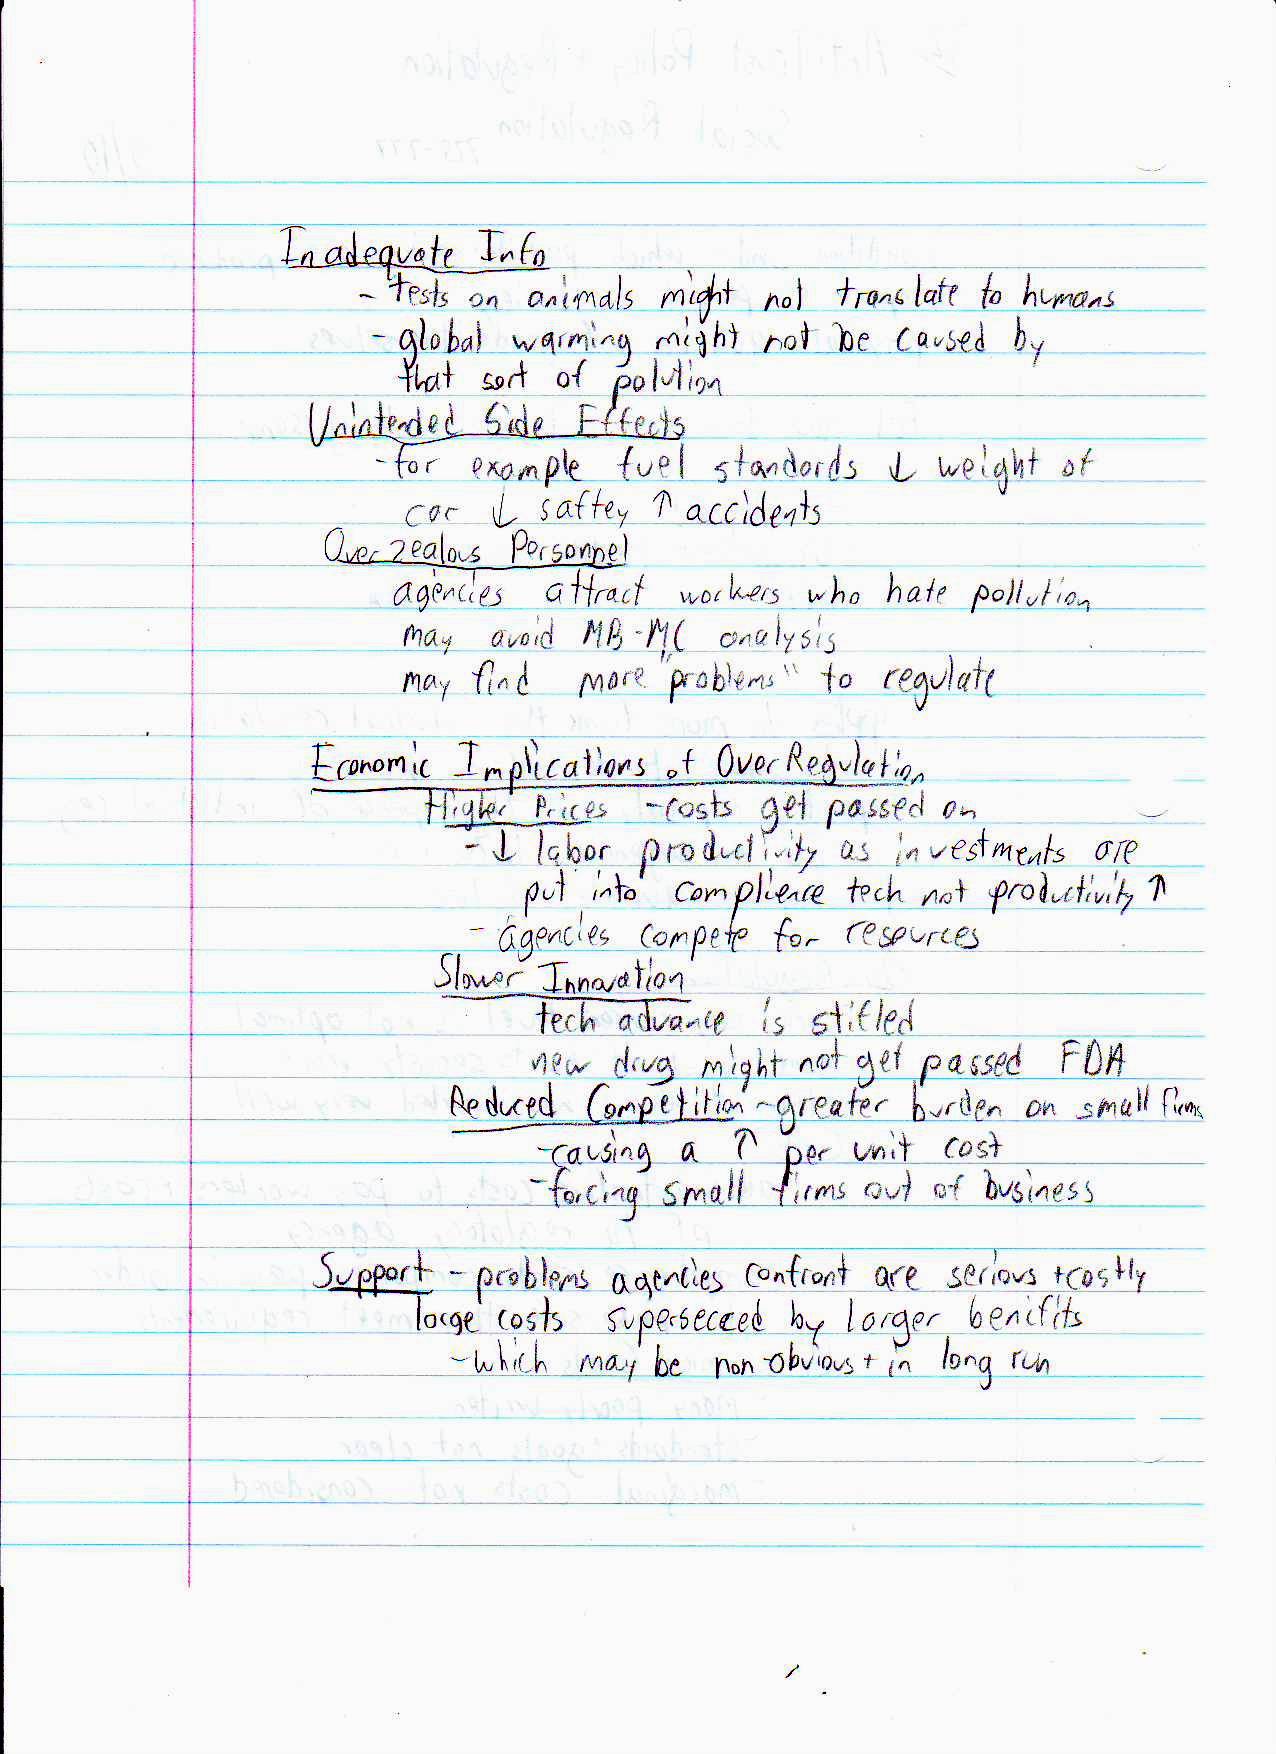 Inadequate Info
- tests on animals might not translate to humans
- global warming might not be caused by
that sort of polution
Unintended Side Effects
- for example fuel standards ↓ weight of
car ↓ saftey ↑ accidents
Over zealous Personnel
agencies attract workers who hate pollution
may avoid MB-MC analysis
may find more "problems" to regulate
Economic Implications of Over Regulation
Higher Prices - costs get passed on
- ↓ labor productivity as investments are
put into complience tech not productivity ↑
- agencies compete for resources
Slower Innovation
tech advance is stifled
new drug might not get passed FDA
Reduced Competition - greater burden on small firms
- causing a ↑ per unit cost
- forcing small firms out of business
Support - problems agencies confront are serious + costly
large costs superseceed by larger benifits
- which may be non-obvious + in long run